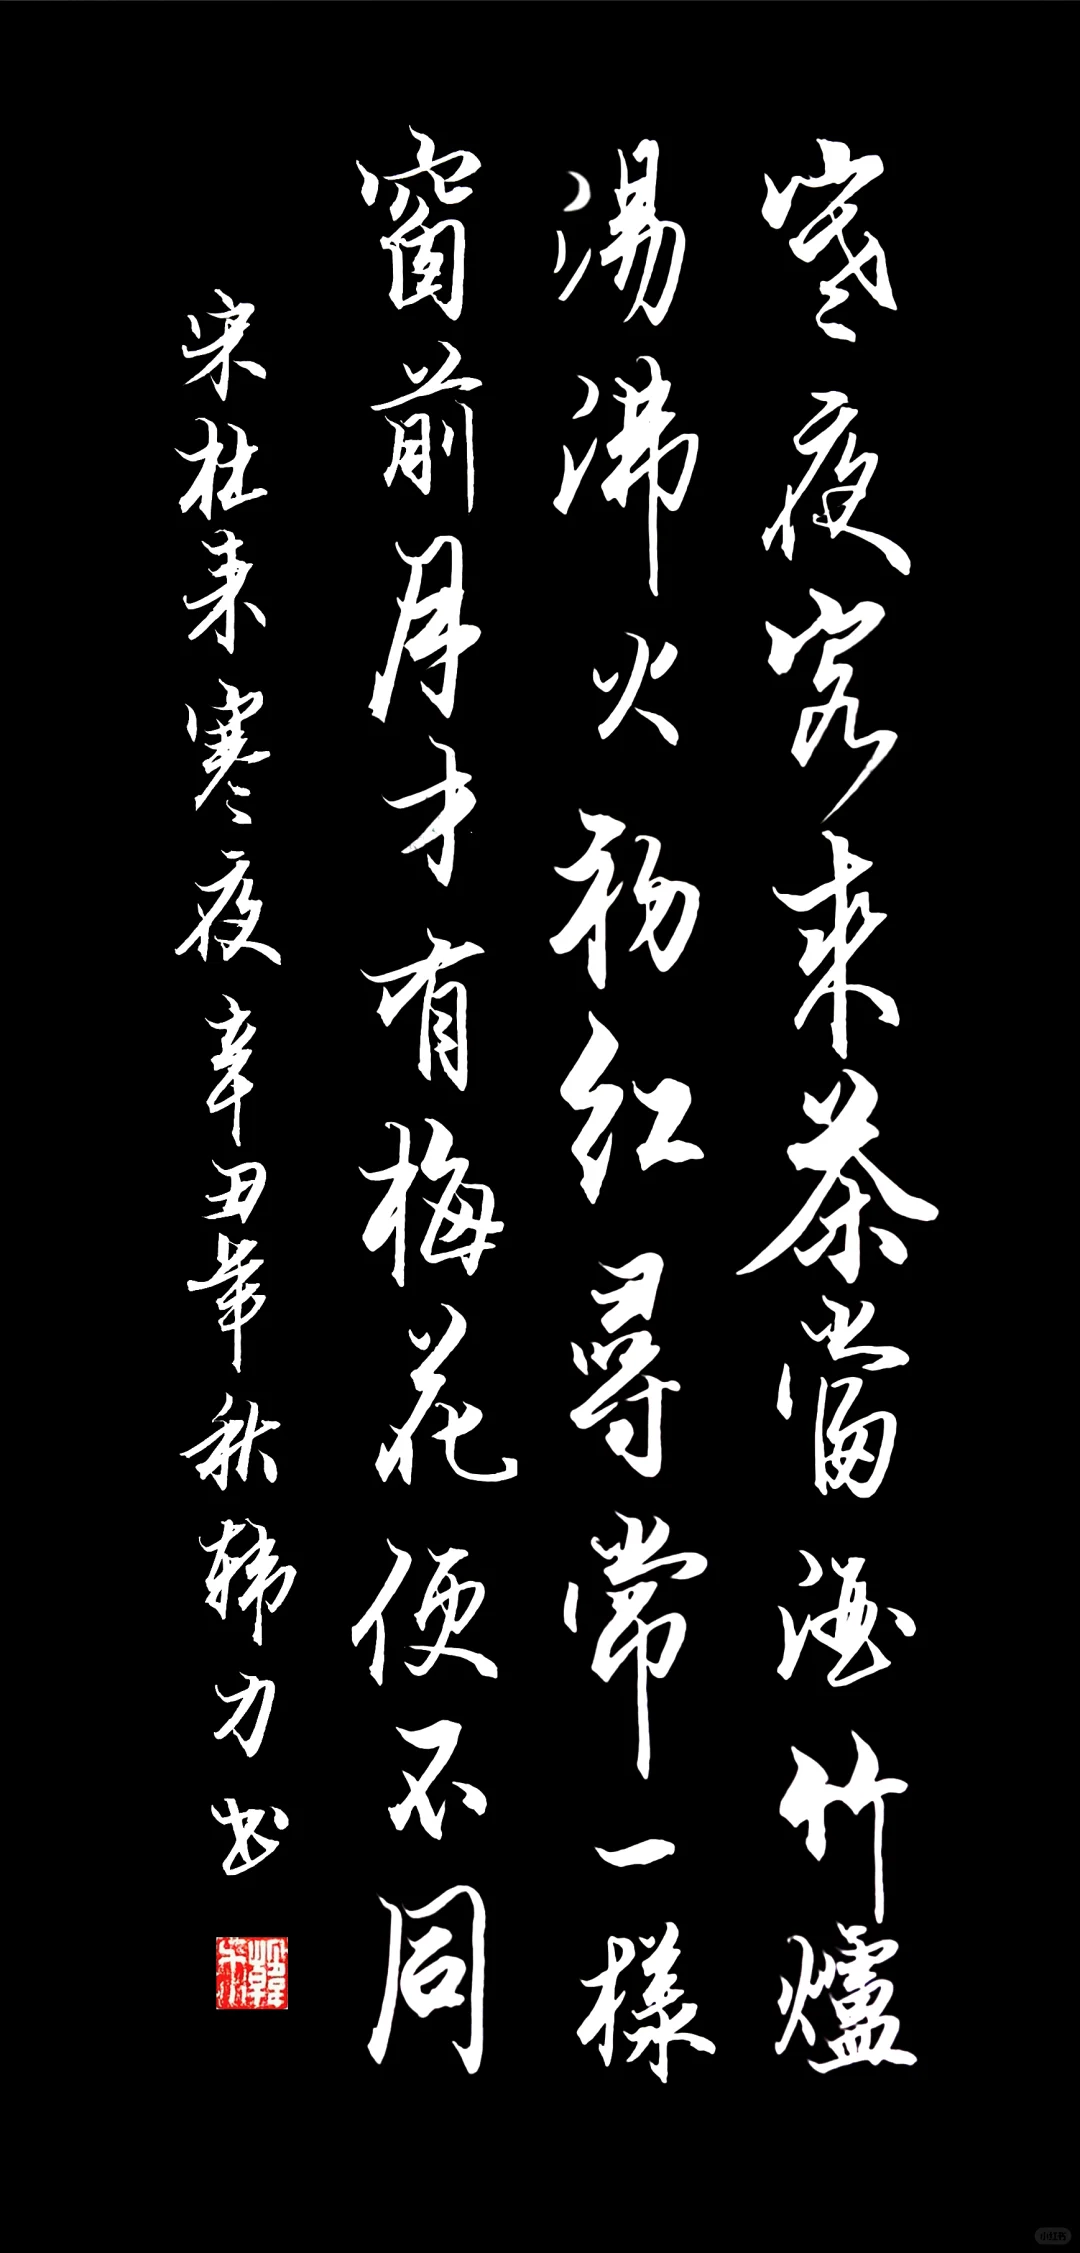 寒夜客來茶當酒竹爐
湯沸火初紅尋常一樣
窗前月才有梅花便不同
宋杜耒寒夜辛丑年秋韩力书
小红书